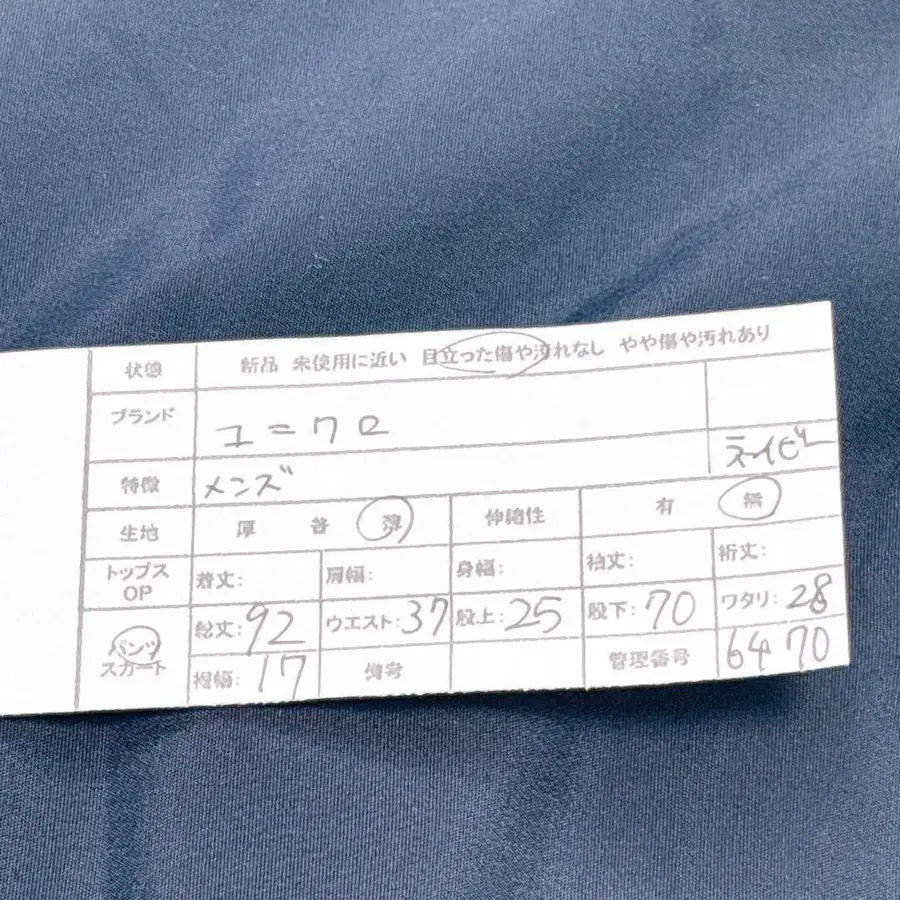 状態 新品 未使用に近い 目立った傷や汚れなし やや傷や汚れあり
ブランド ユニクロ
特徴 メンズ ネイビー
生地 厚 普 薄 伸縮性 有 無
トップス OP 着丈: 肩幅: 身幅: 袖丈: 裄丈:
パンツ 総丈: 92 ウエスト: 37 股上: 25 股下: 70 ワタリ: 28
スカート 裾幅: 17 備考 管理番号 6470